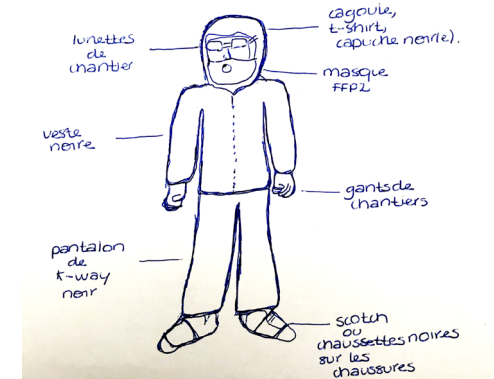 lunettes
de
chantier
cagoule,
t-shirt,
capuche noir(e).
masque
FFP2
veste
noire
gants de
chantiers
pantalon
de
K-way
noir
scotch
ou
chaussettes noires
sur les
chaussures